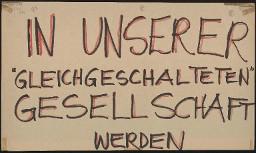 IN UNSERER
"GLEICHGESCHALTETEN"
GESELLSCHAFT
WERDEN